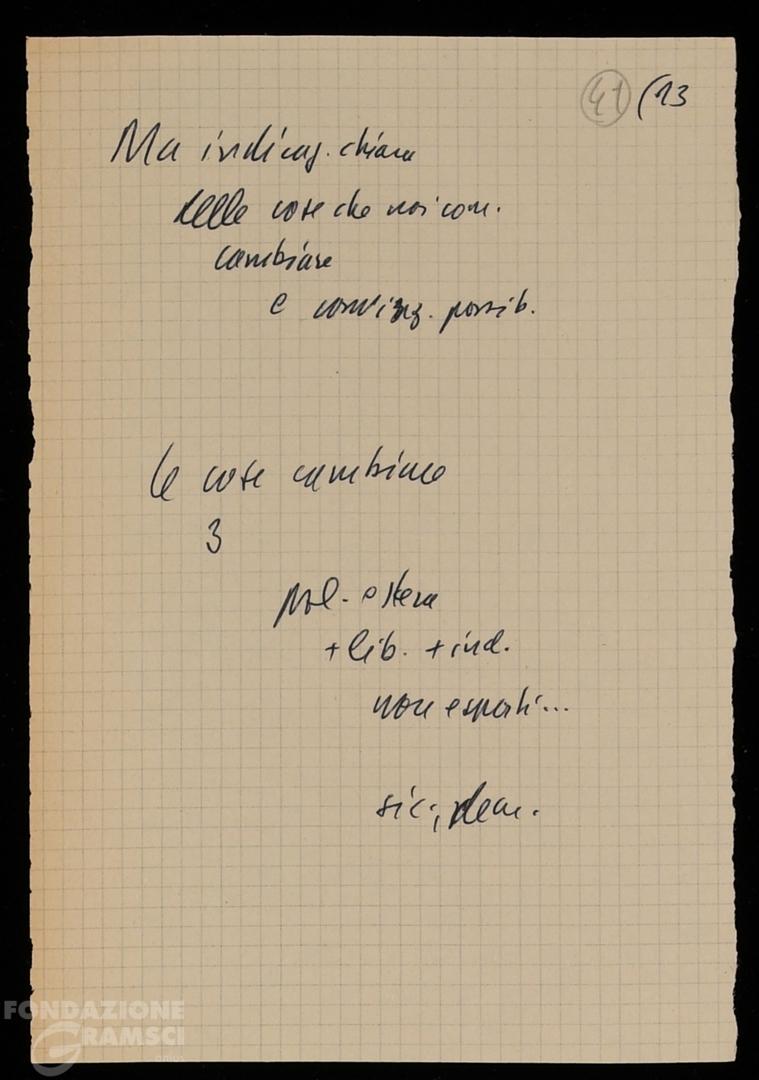 41 (13
Ma indicaz. chiara
delle cose che noi com.
cambiare
e convinz. possib.
le cose cambiano
3
pol. estera
+ lib. + ind.
non esposti...
sic., dem.
FONDAZIONE
GRAMSCI
onlus